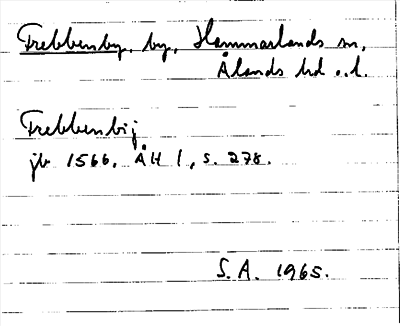 Frebbenby, by, Hammarlands sn,
Ålands hd o.l.
Frebbenbij
jb 1566. ÅH 1, s. 278.
S.A. 1965.